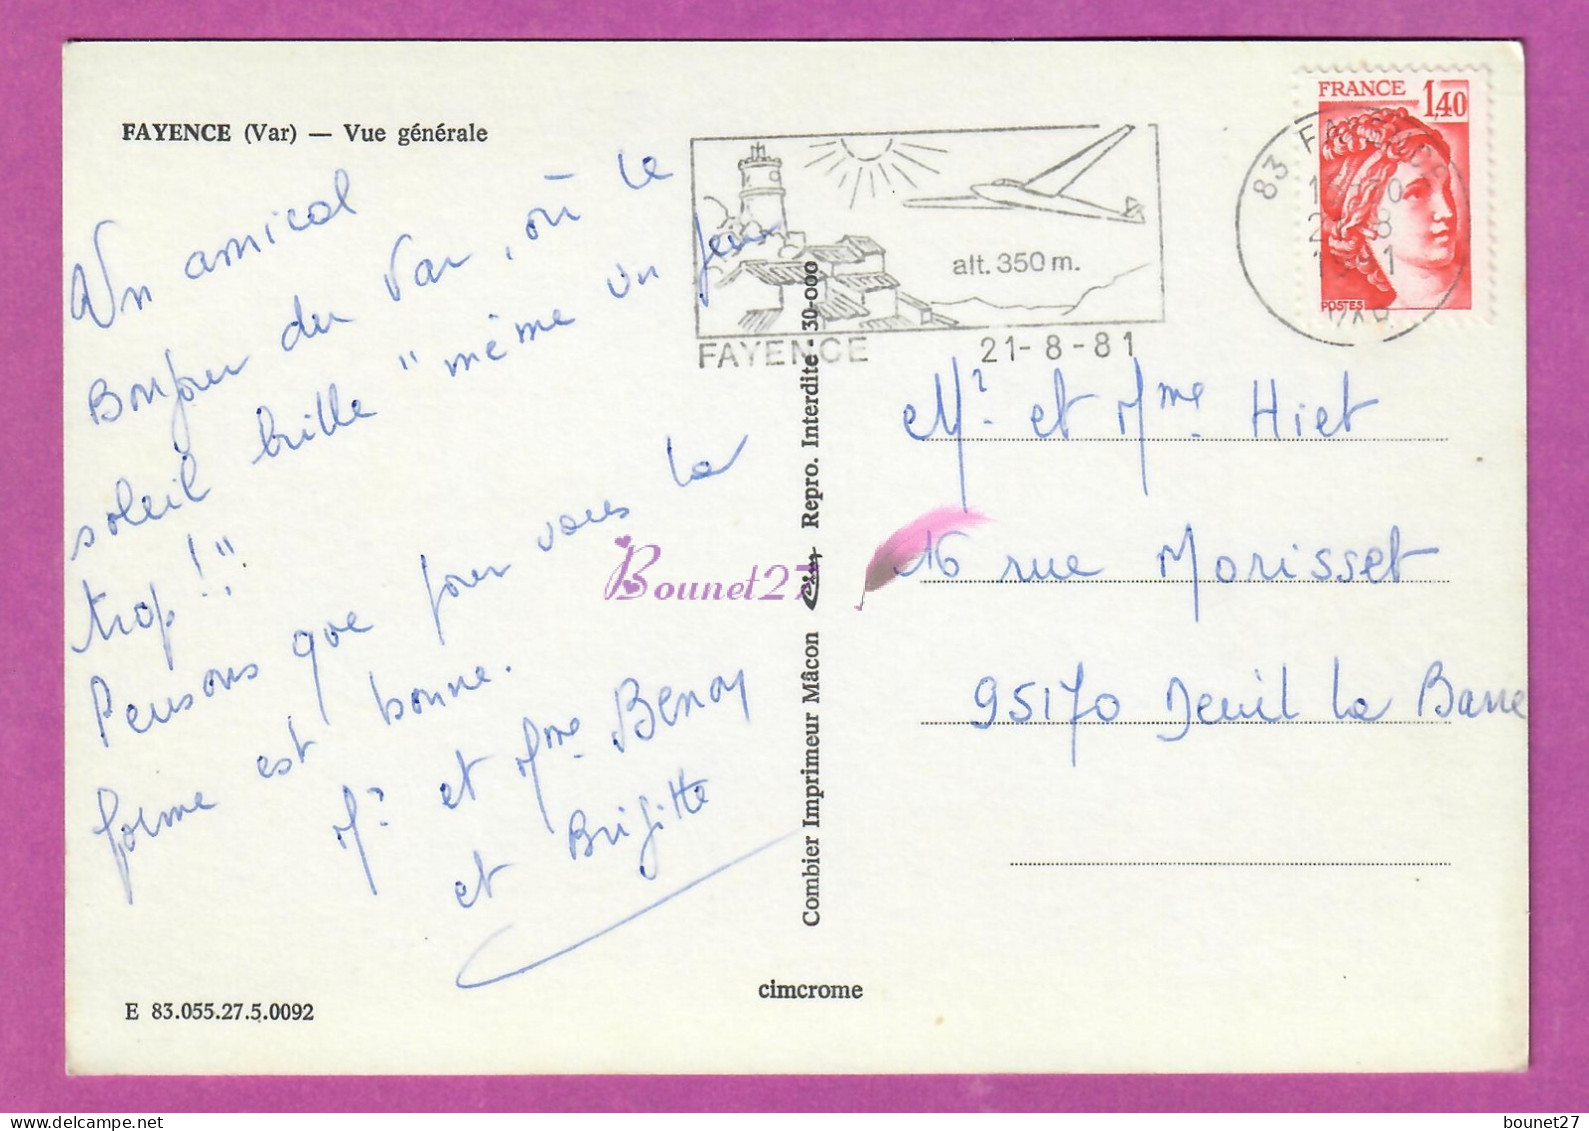 FAYENCE (Var) — Vue générale
Un amical
Bonjour du Var, où le
soleil brille "même un peu
trop!"
Pensons que pour vous la
forme est bonne.
Mr et Mme Benoy
et Brigitte
E 83.055.27.5.0092
cimcrome
Combier Imprimeur Mâcon Cim Repro. Interdite - 30-000
Bounet27
alt. 350 m.
FAYENCE 21-8-81
FRANCE 1,40
POSTES
83 FAYENCE
21-8
1981
VAR
Mr et Mme Hiet
16 rue Morisset
95170 Deuil la Barre
bounet27